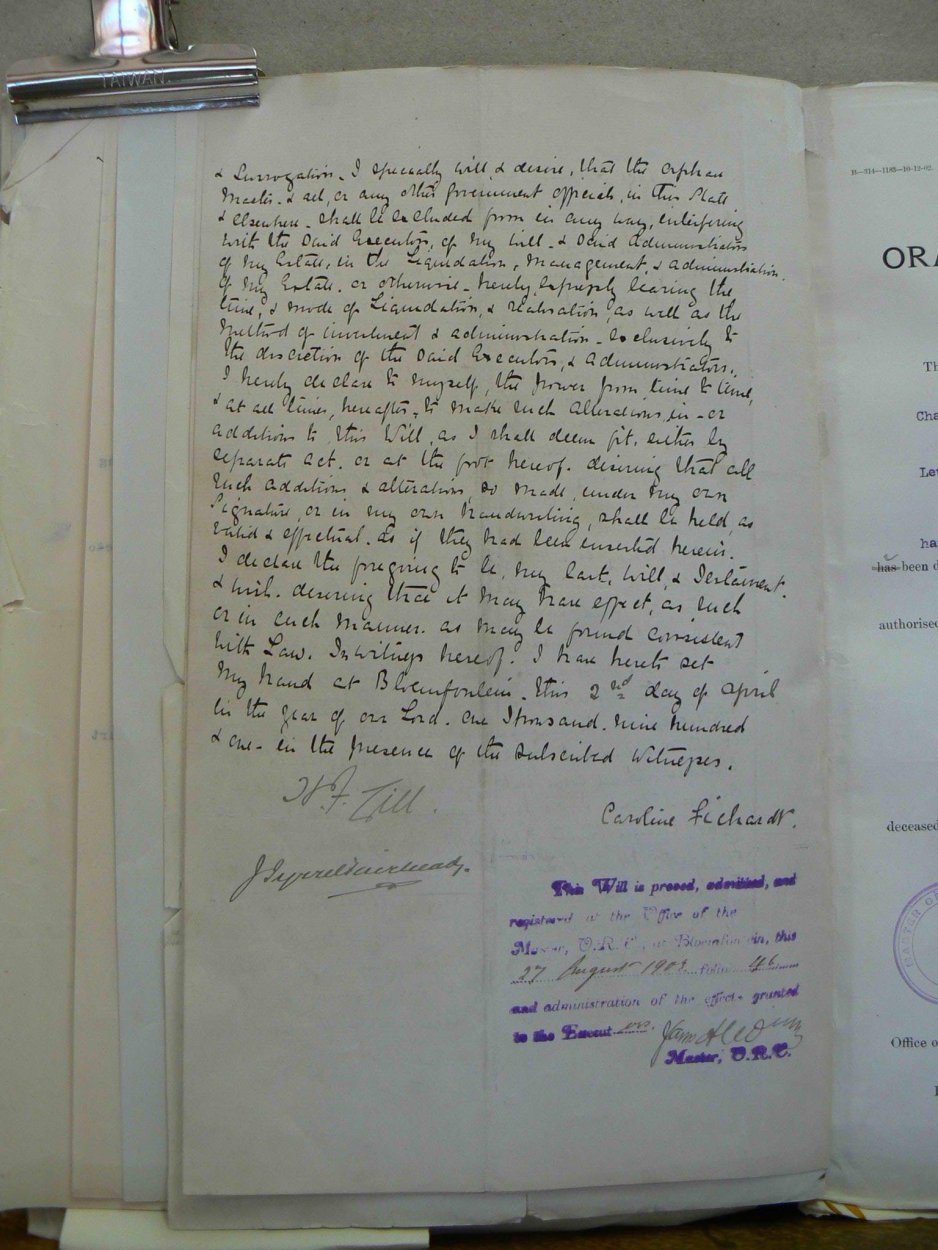 TAIWAN.
& Surrogation. I specially will & desire, that the Orphan
Master. & all, or any other Government Officials, in this State
& elsewhere. shall be excluded from in any way, interfering
with the said Executors, of my Will. & said Administrators
of my Estate, in the Liquidation, Management, & Administration.
of my Estate. or otherwise. hereby, expressly leaving the
time, & mode of Liquidation, & realisation, as well as the
method of investment & administration. exclusively to
the discretion of the said Executors, & Administrators.
I hereby declare to myself, the power from time to time,
& at all times, hereafter, to make such alterations, in - or
additions to, this Will, as I shall deem fit. either by
separate act. or at the foot hereof. desiring that all
such additions & alterations, so made, under my own
Signature, or in my own handwriting, shall be held, as
valid & effectual. as if they had been inserted herein.
I declare the foregoing to be, my last, Will, & Testament.
& wish. desiring that it may have effect, as such
or in such manner. as may be found consistent
with Law. In witness hereof. I have hereto set
my hand at Bloemfontein. this 2nd day of April
in the year of our Lord. one Thousand. nine hundred
& one - in the presence of the subscribed Witnesses.
Till.
Caroline Fichardt.
This Will is proved, admitted, and
registered at the Office of the
Master, O.R.C., at Bloemfontein, this
27 August 1903 folio 46
and administration of the effects granted
to the Executors.
Master, O.R.C.
B-314-1185-10-12-02.
ORA
Th
Cha
Le
ha
has been d
authorised
deceased
Office o